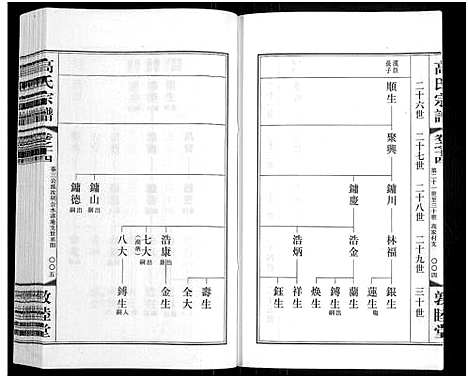 高氏宗譜
卷之四
第二十一世至三十世
〇〇四
敦睦堂
二十六世
二十七世
二十八世
二十九世
三十世
長子
順生
聚興
鏞川
鏞慶
林福
浩金
浩炳
銀生
蓮生
蘭生
鏄生 出嗣
煥生
祥生
鈺生
鏞山 出嗣
鏞德 出嗣
浩康
七大 出嗣
八大
壽生
全大
金生
鏄生 入嗣
高氏宗譜
卷之四
〇〇五
敦睦堂